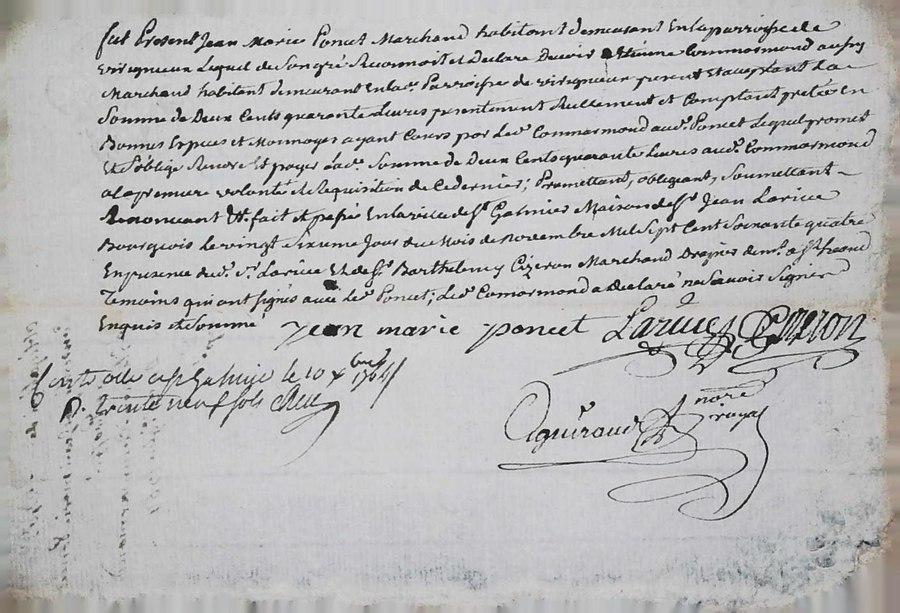 fut Present Jean Marie Poncet Marchand habitant demeurant En la parroisse de
virigneux Lequel de Son gré Reconnoit et Declare Devoir a Etienne Commarmond aussy
Marchand habitant demeurant En lad. Parroisse de virigneux present et acceptant La
Somme de Deux Cents quarante Livres presentement Reellement et Comptant pretées En
Bonnes Especes et Monnoyes ayant Cours par Led. Commarmond aud. Poncet Lequel promet
Et s'oblige Rendre Et payer Lad. Somme de Deux Cents quarante Livres aud. Commarmond
a la premiere volonté et Requisition de Ce dernier; Promettant, obligeant, Soumettant
Renonceant &t. fait et passé En la ville de St. Galmier Maison de Sr. Jean Larüe
Bourgeois le vingt Sixieme Jour du Mois de Novembre Mil Sept Cent Soixante quatre
En presence dud. Sr. Larüe Et de Sr. Barthelemy Cizeron Marchand
Temoins qui ont signés avec Led. Poncet; Led. Comarmond a Declaré ne Savoir Signer
Enquis et Sommé
Jean marie poncet Larüe Cizeron
le 10 xbre 1764
R. trente neuf sols
Aguiraud nore royal